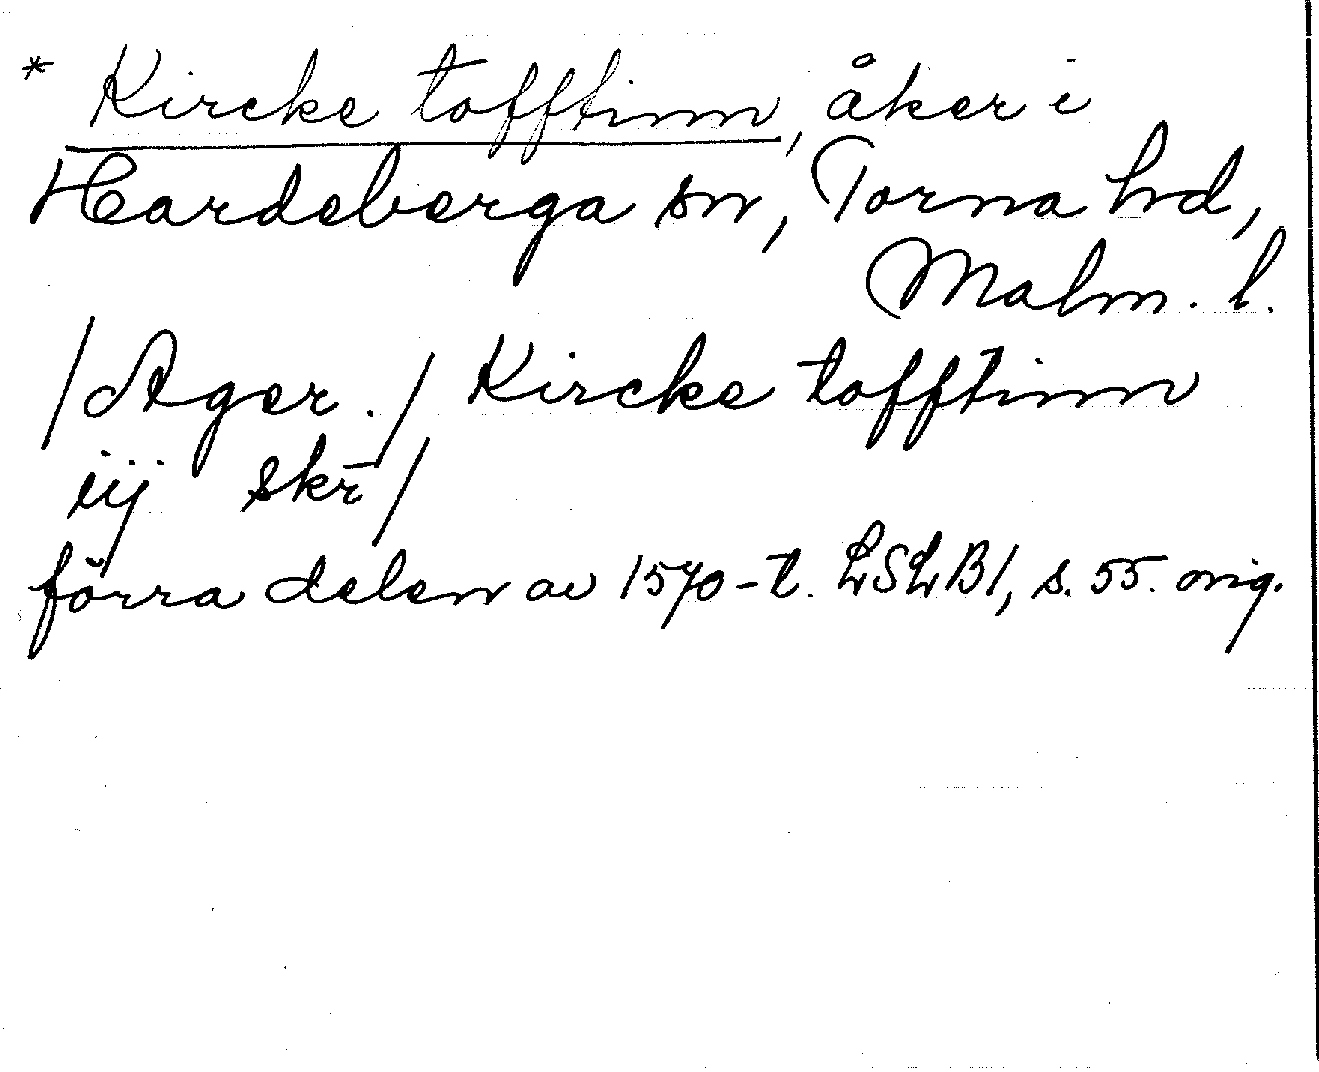 * Kircke tofftinn, åker i
Hardeberga sn, Torna hd,
Malm. l.
/Ager./ Kircke tofftinn
iij skr̄/
förra delen av 1570-t. LSLB1, s. 55. orig.